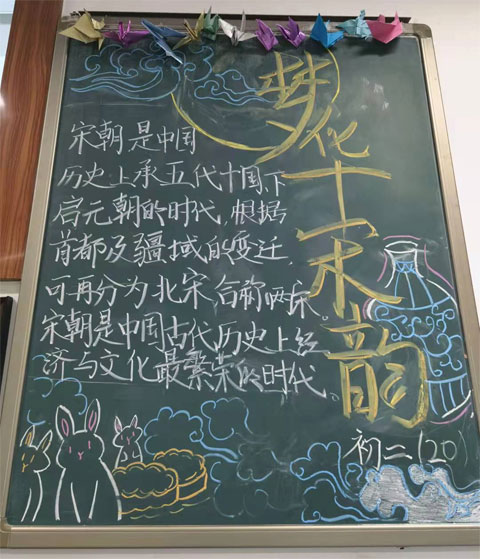 梦华宋韵
宋朝是中国
历史上承五代十国下
启元朝的时代,根据
首都及疆域的变迁,
可再分为北宋合称两宋。
宋朝是中国古代历史上经
济与文化最繁荣的时代。
初二(20)